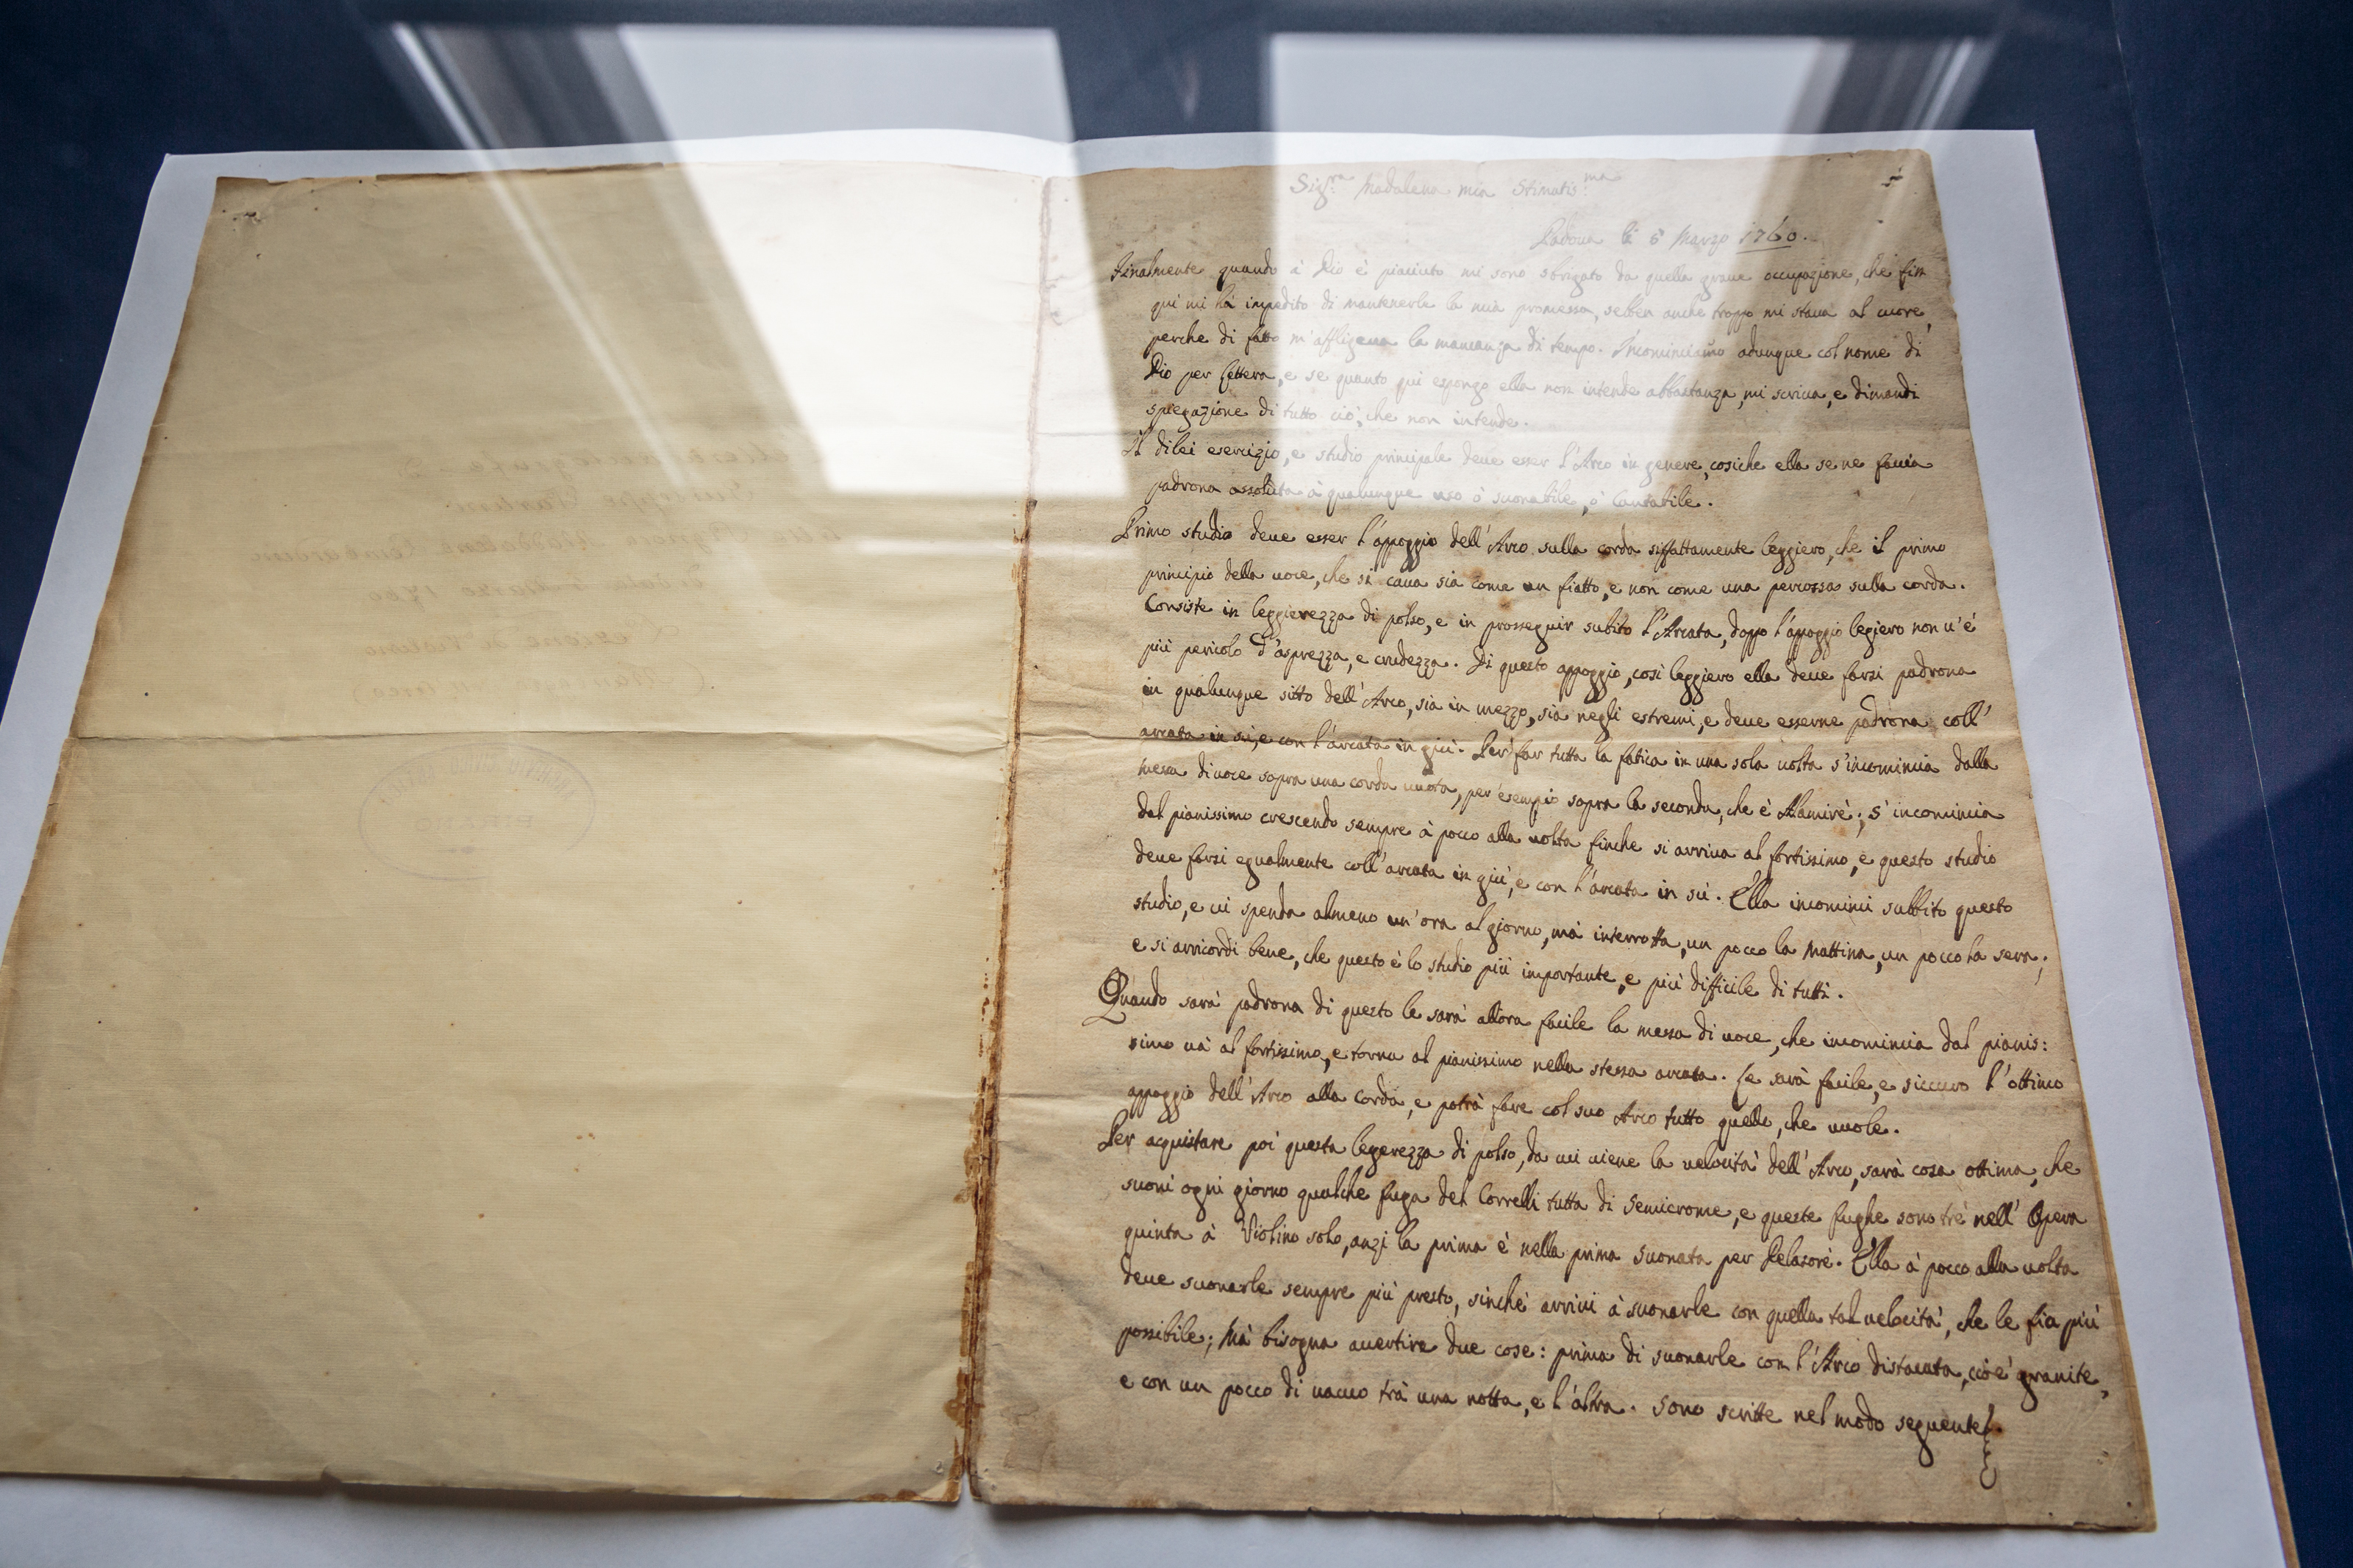 Sig.ra Madalena mia Stimatis.ma
Padova li 5 Marzo 1760.
Finalmente quando à Dio è piaciuto mi sono sbrigato da quella graue occupazione, che fin
quì mi hà impedito di mantenerle la mia promessa, sebben anche troppo mi staua al cuore,
perche di fatto m'affligeua la mancanza di tempo. Incominciamo adunque col nome di
Dio per lettera, e se quanto qui espongo ella non intende abbastanza, mi scriua, e dimandi
spiegazione di tutto ciò, che non intende.
Il dilei esercizio, e studio principale deue esser l'Arco in genere, cosiche ella se ne faccia
padrona assoluta à qualunque uso ò suonabile, ò Cantabile.
Primo studio deue esser l'appoggio dell'Arco sulla corda siffattamente leggiero, che il primo
principio della uoce, che si caua sia come un fiatto, e non come una percossa sulla corda.
Consiste in leggierezza di polso, e in prosseguir subito l'Arcata, doppo l'appoggio legiero non u'è
più pericolo d'asprezza, e crudezza. Di questo appoggio, così leggiero ella deue farsi padrona
in qualunque sitto dell'Arco, sia in mezzo, sia negli estremi, e deue esserne padrona coll'
arcata in sù, e con l'arcata in giù. Per far tutta la fatica in una sola uolta s'incomincia dalla
messa di uoce sopra una corda uuota, per esempio sopra la seconda, che è Alamirè; s'incomincia
dal pianissimo crescendo sempre à pocco alla uolta finche si arriua al fortissimo, e questo studio
deue farsi egualmente coll'arcata in giù, e con l'arcata in sù. Ella incominci subbito questo
studio, e ui spenda almeno un'ora al giorno, mà interrotta, un pocco la Mattina, un pocco la sera;
e si arricordi bene, che questo è lo studio più importante, e più difficile di tutti.
Quando sarà padrona di questo le sarà allora facile la messa di uoce, che incomincia dal pianis:
simo uà al fortissimo, e torna al pianissimo nella stessa arcata. Le sarà facile, e siccuro l'ottimo
appoggio dell'Arco alla Corda, e potrà fare col suo Arco tutto quello, che uuole.
Per acquistare poi questa legerezza di polso, da cui uiene la uelocità dell'Arco, sarà cosa ottima, che
suoni ogni giorno qualche fuga del Correlli tutta di Semicrome, e queste fughe sono tre nell'Opera
quinta à Violino solo, anzi la prima è nella prima Suonata per Delasorè. Ella à pocco alla uolta
deue suonarle sempre più presto, sinchè arriui à suonarle con quella tal uelocità, che le fia più
possibile; Mà bisogna auertire due cose: prima di suonarle con l'Arco distaccato, cioè granite,
e con un pocco di uacuo trà una notta, e l'altra. Sono scritte nel modo seguente